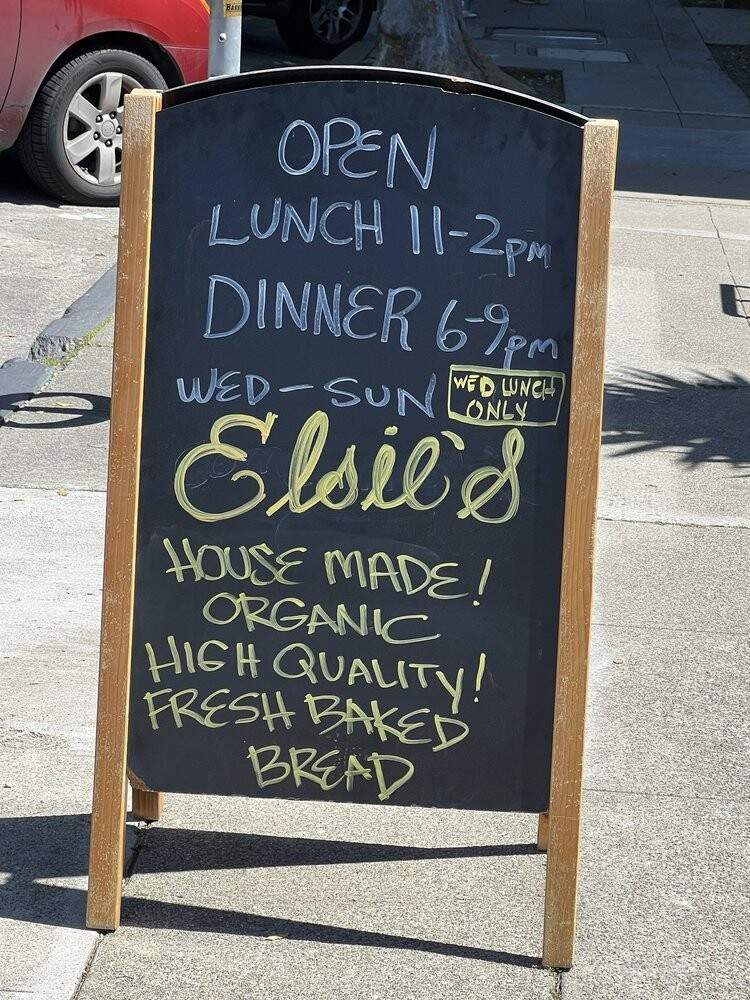 OPEN
LUNCH 11-2pm
DINNER 6-9pm
WED-SUN
WED LUNCH
ONLY
Elsie's
HOUSE MADE!
ORGANIC
HIGH QUALITY!
FRESH BAKED
BREAD